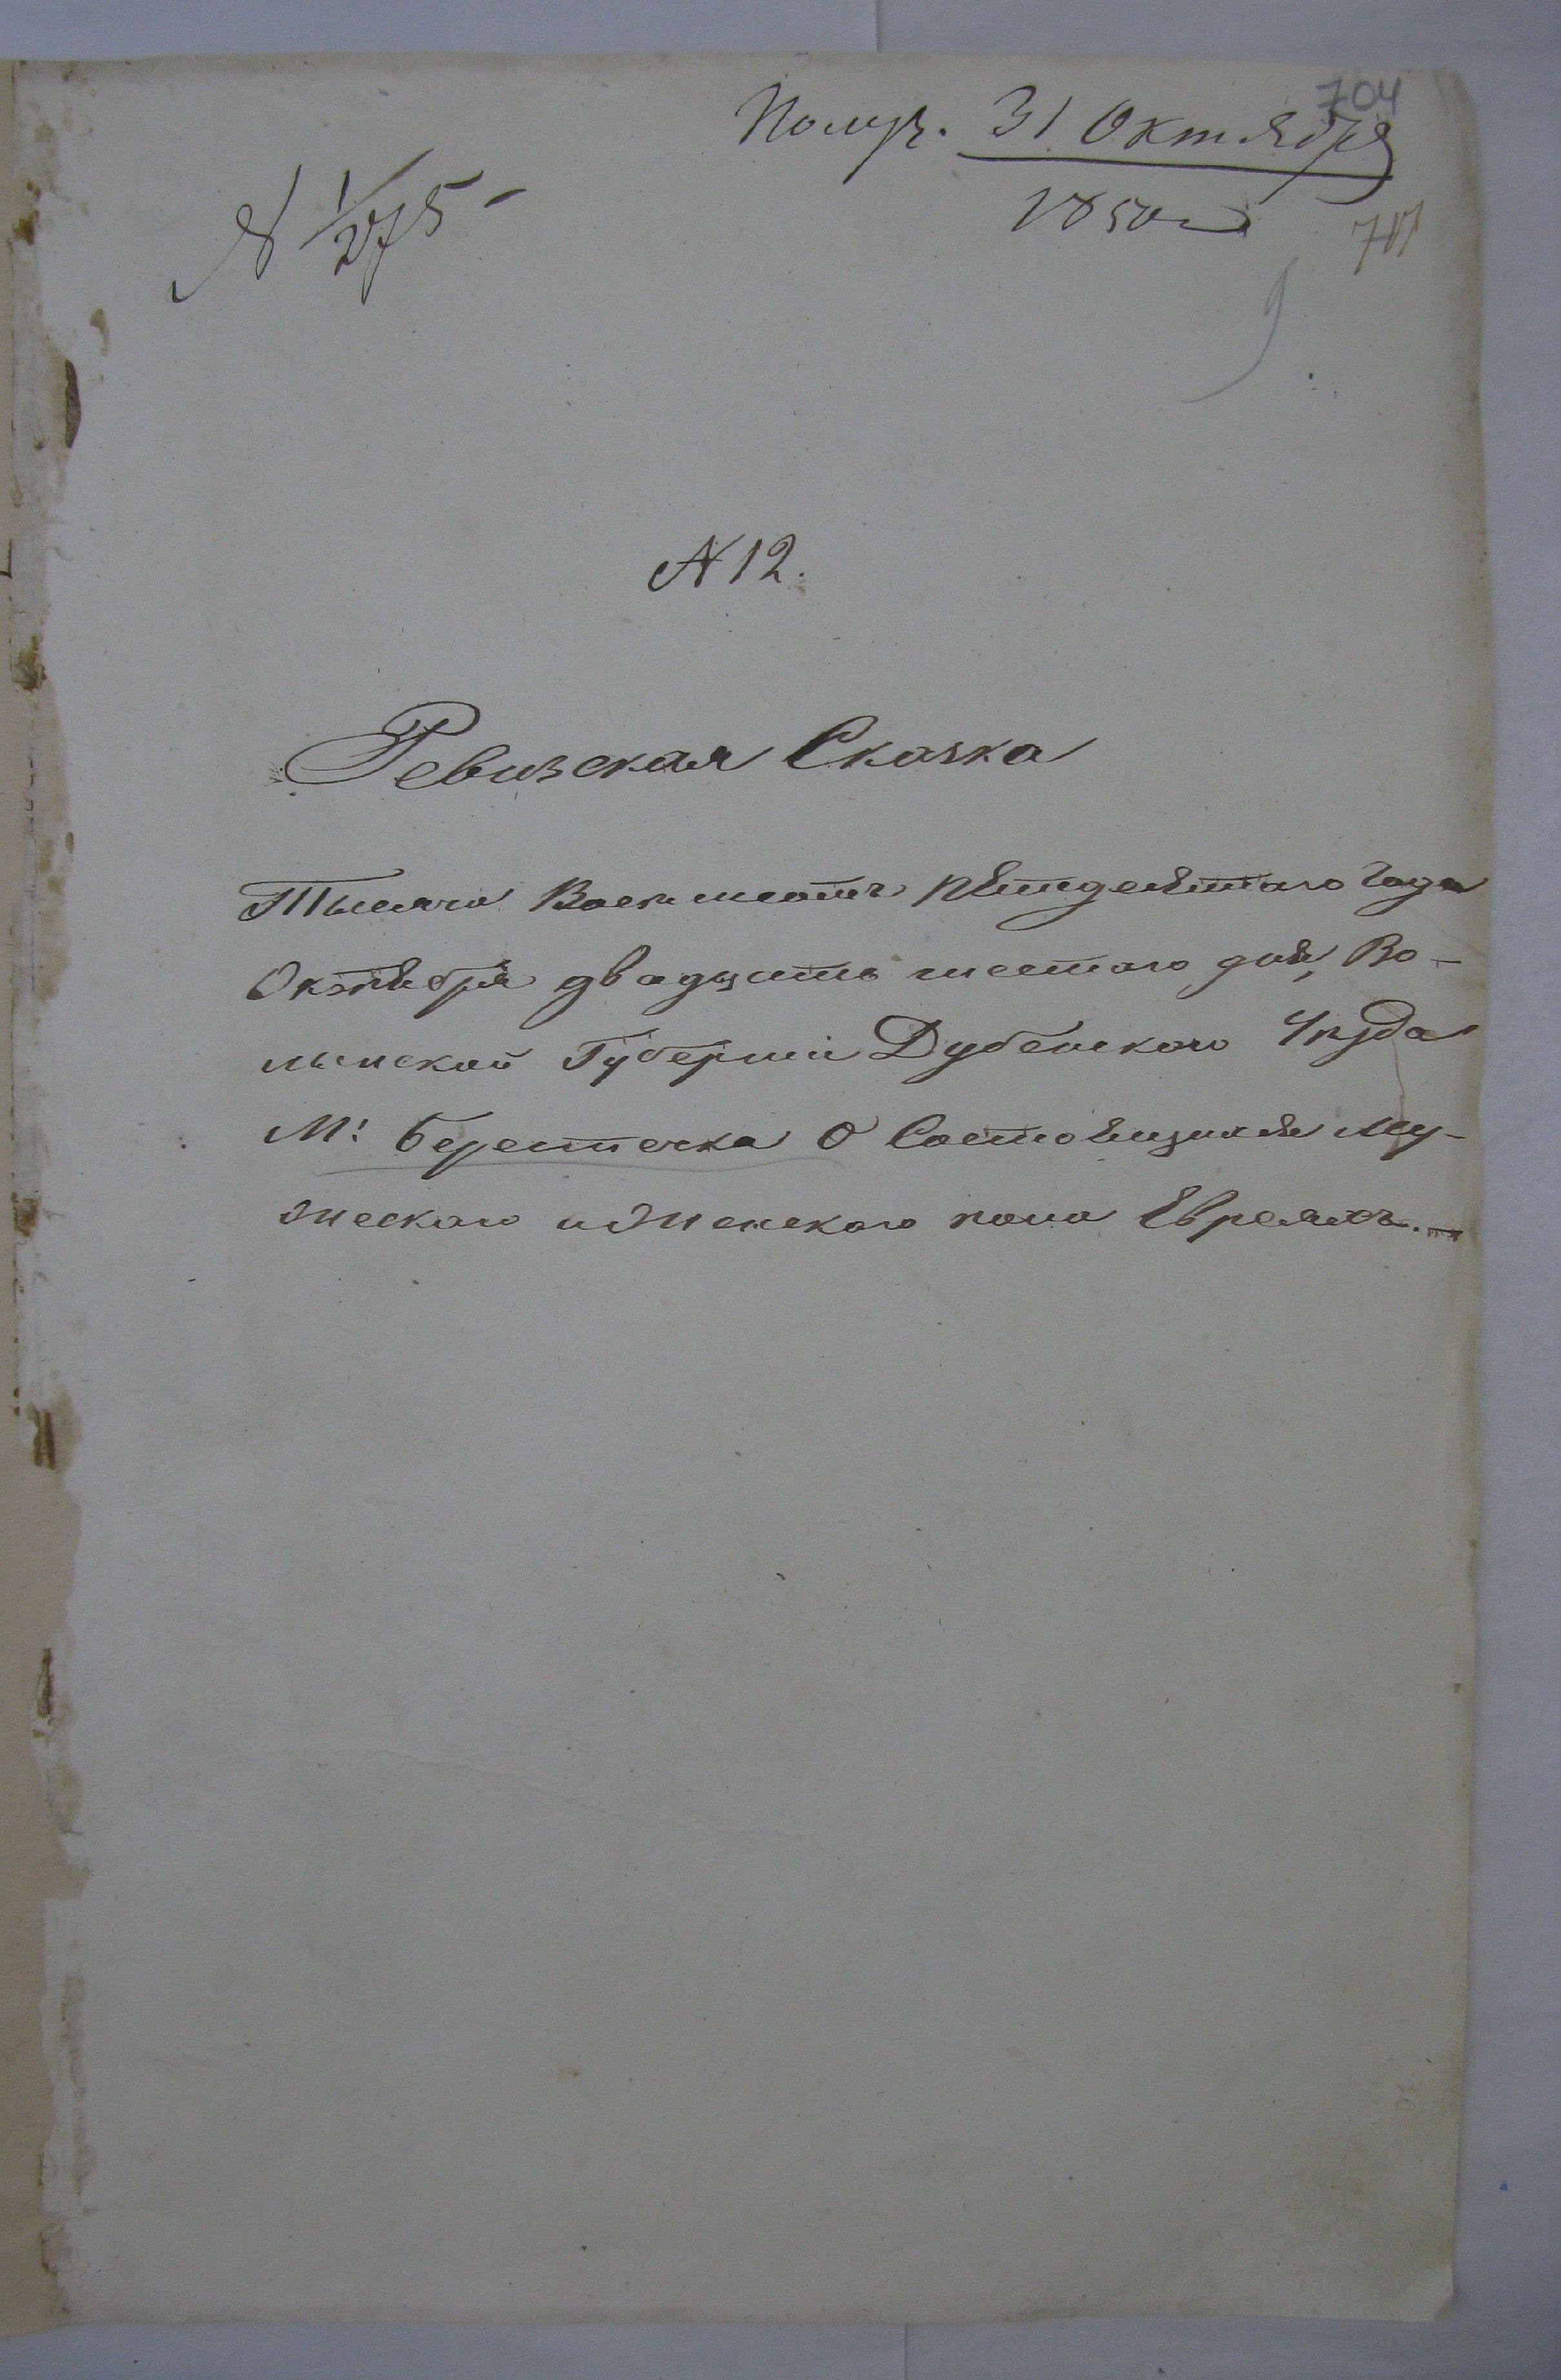 704
Получ. 31 Октября
1850 г
№ 1/275
711
№ 12.
Ревизская Сказка
Тысяча Восемсотъ пятдесятаго Года
Октября двадцать шестаго дня, Во-
лынской Губерніи Дубенского Уѣзда
М: Берестечка О Состоящихъ му-
жеского и женского пола Евреяхъ.